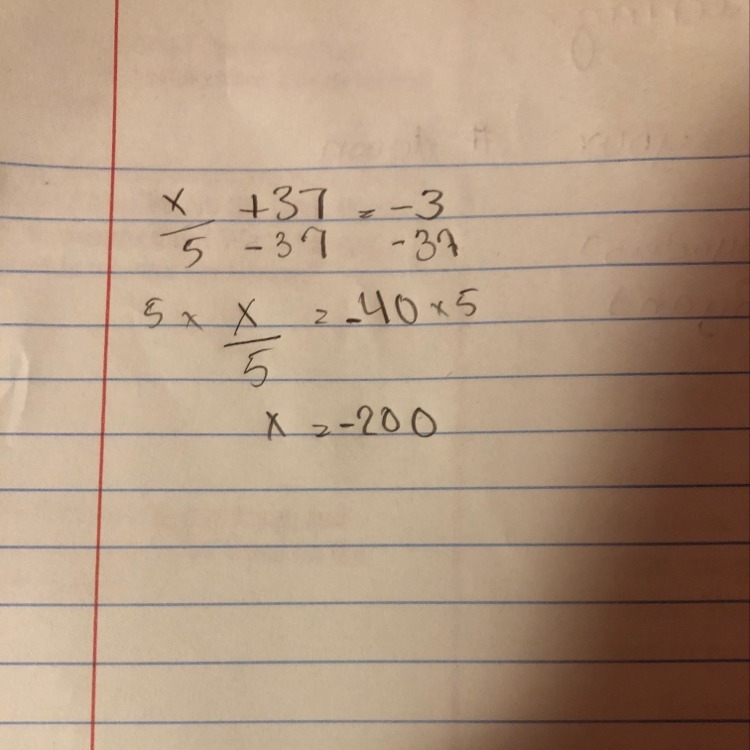 x/5 +37 = -3
-37 -37
5 × x/5 = -40 × 5
x = -200